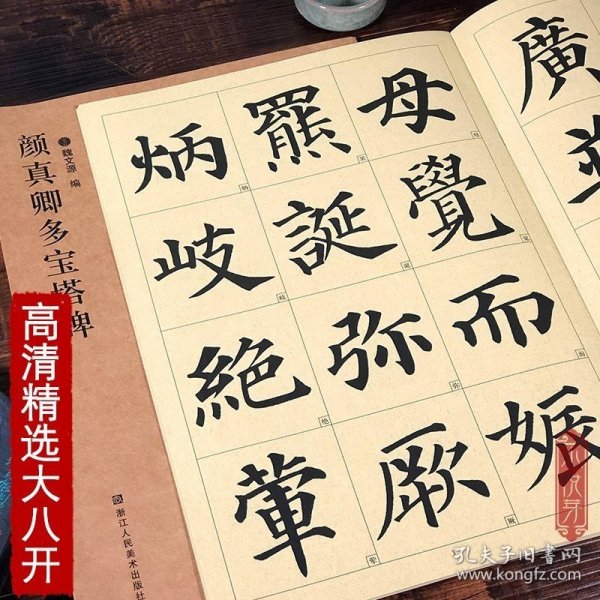 廣
母覺而娠
羆誕弥厥
炳岐絶葷
魏文源 编
颜真卿多宝塔碑
浙江人民美术出版社
高清精选大八开
孔夫子旧书网
www.kongfz.com